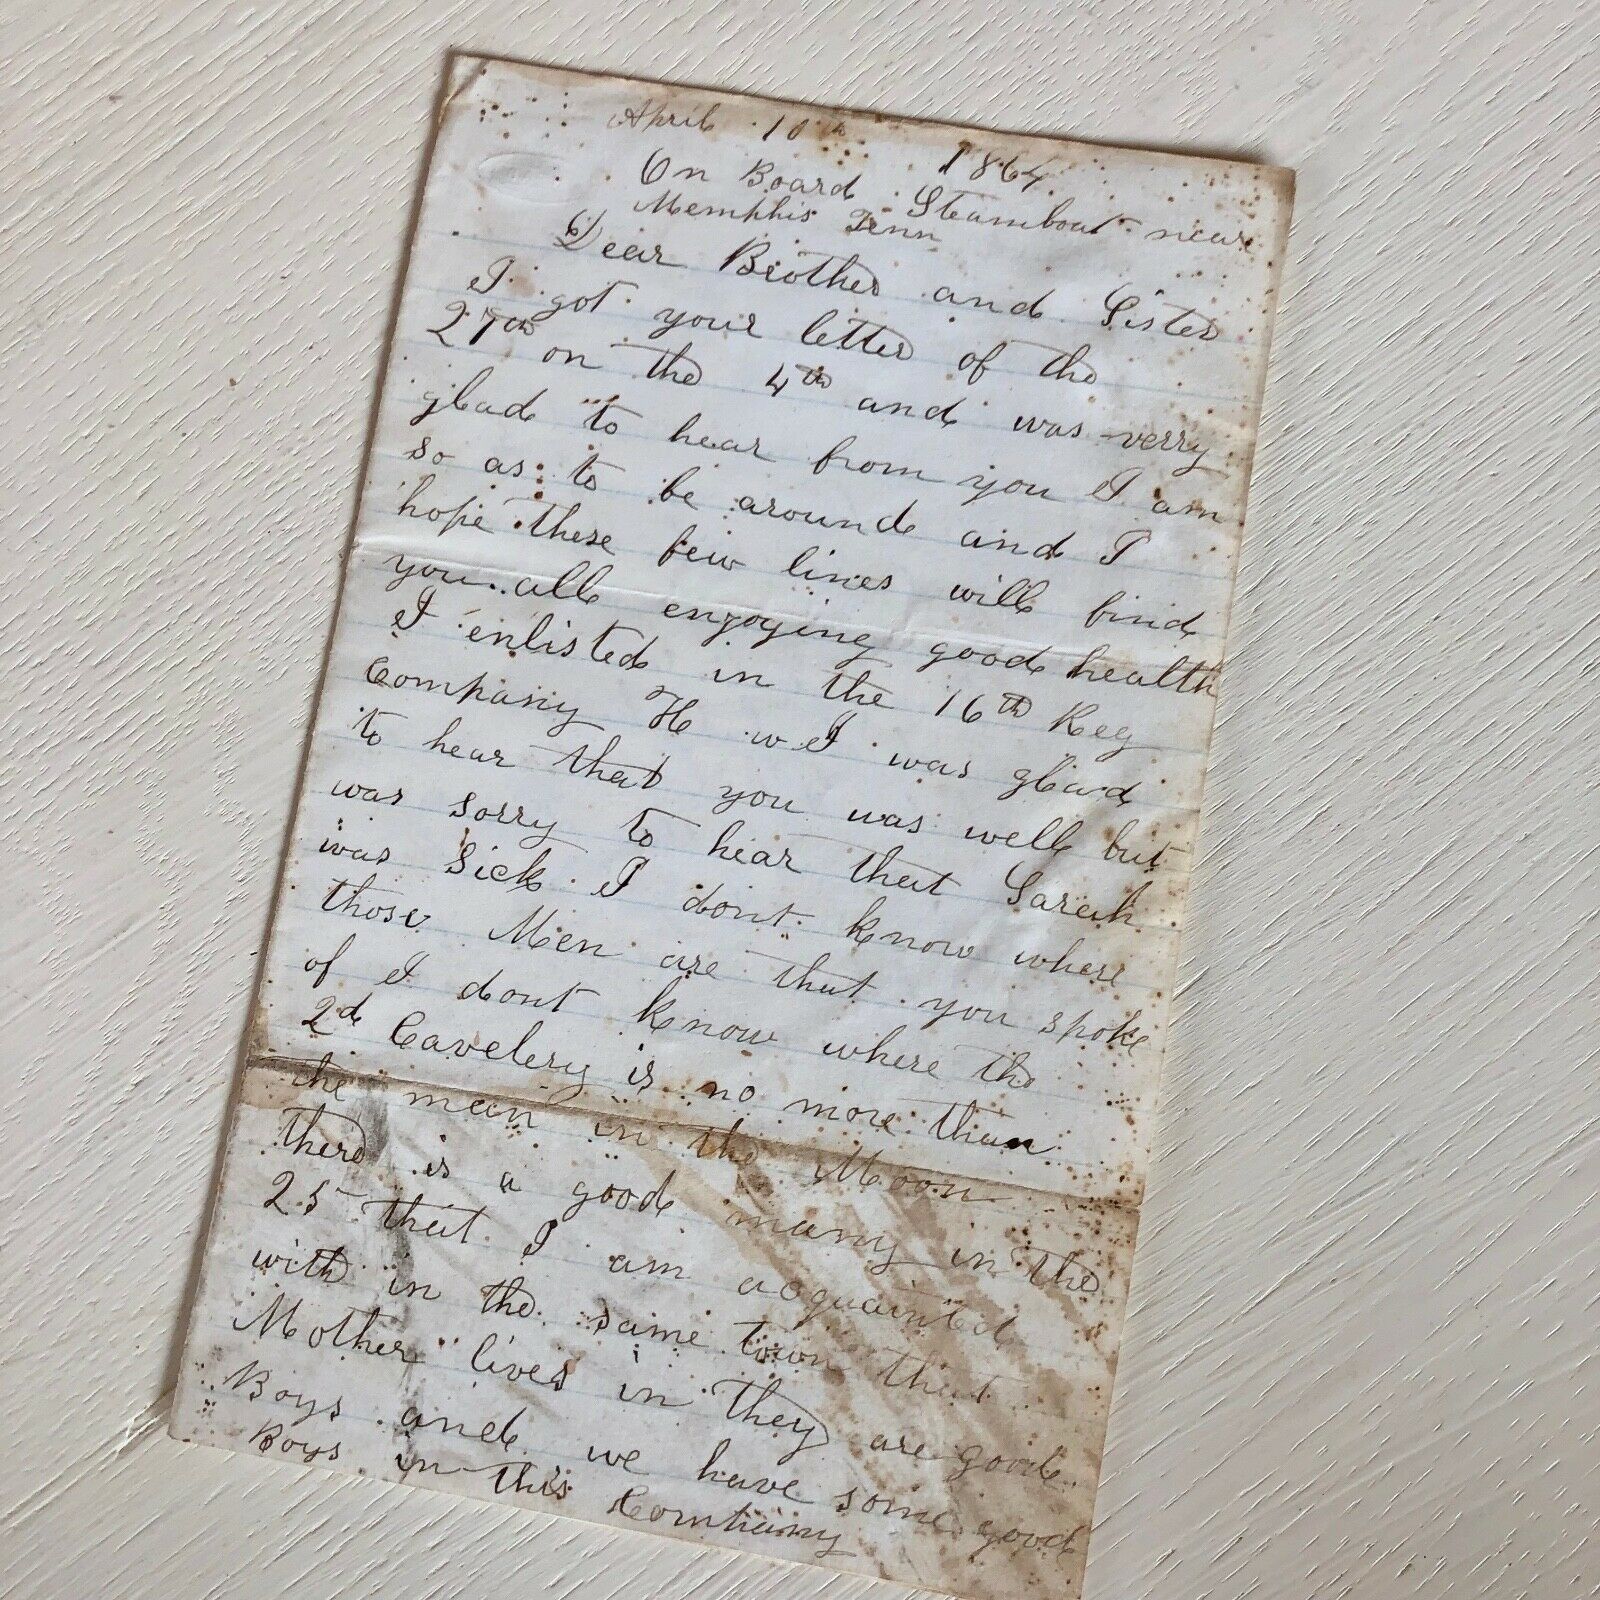 April 10th 1864
On Board Steamboat near
Memphis Tenn
Dear Brother and Sister
I got your letter of the
27th on the 4th and was verry
glad to hear from you I am
so as to be around and I
hope these few lines will find
you all enjoying good health
I enlisted in the 16th Reg
Company H w I was glad
to hear that you was well but
was sorry to hear that Sarah
was Sick I dont know where
those Men are that you spoke
of I dont know where the
2d Cavelery is no more than
the man in the Moon
there is a good many in the
25 that I am acquainted
with in the same town that
Mother lives in They are good
Boys and we have some good
Boys in this Company